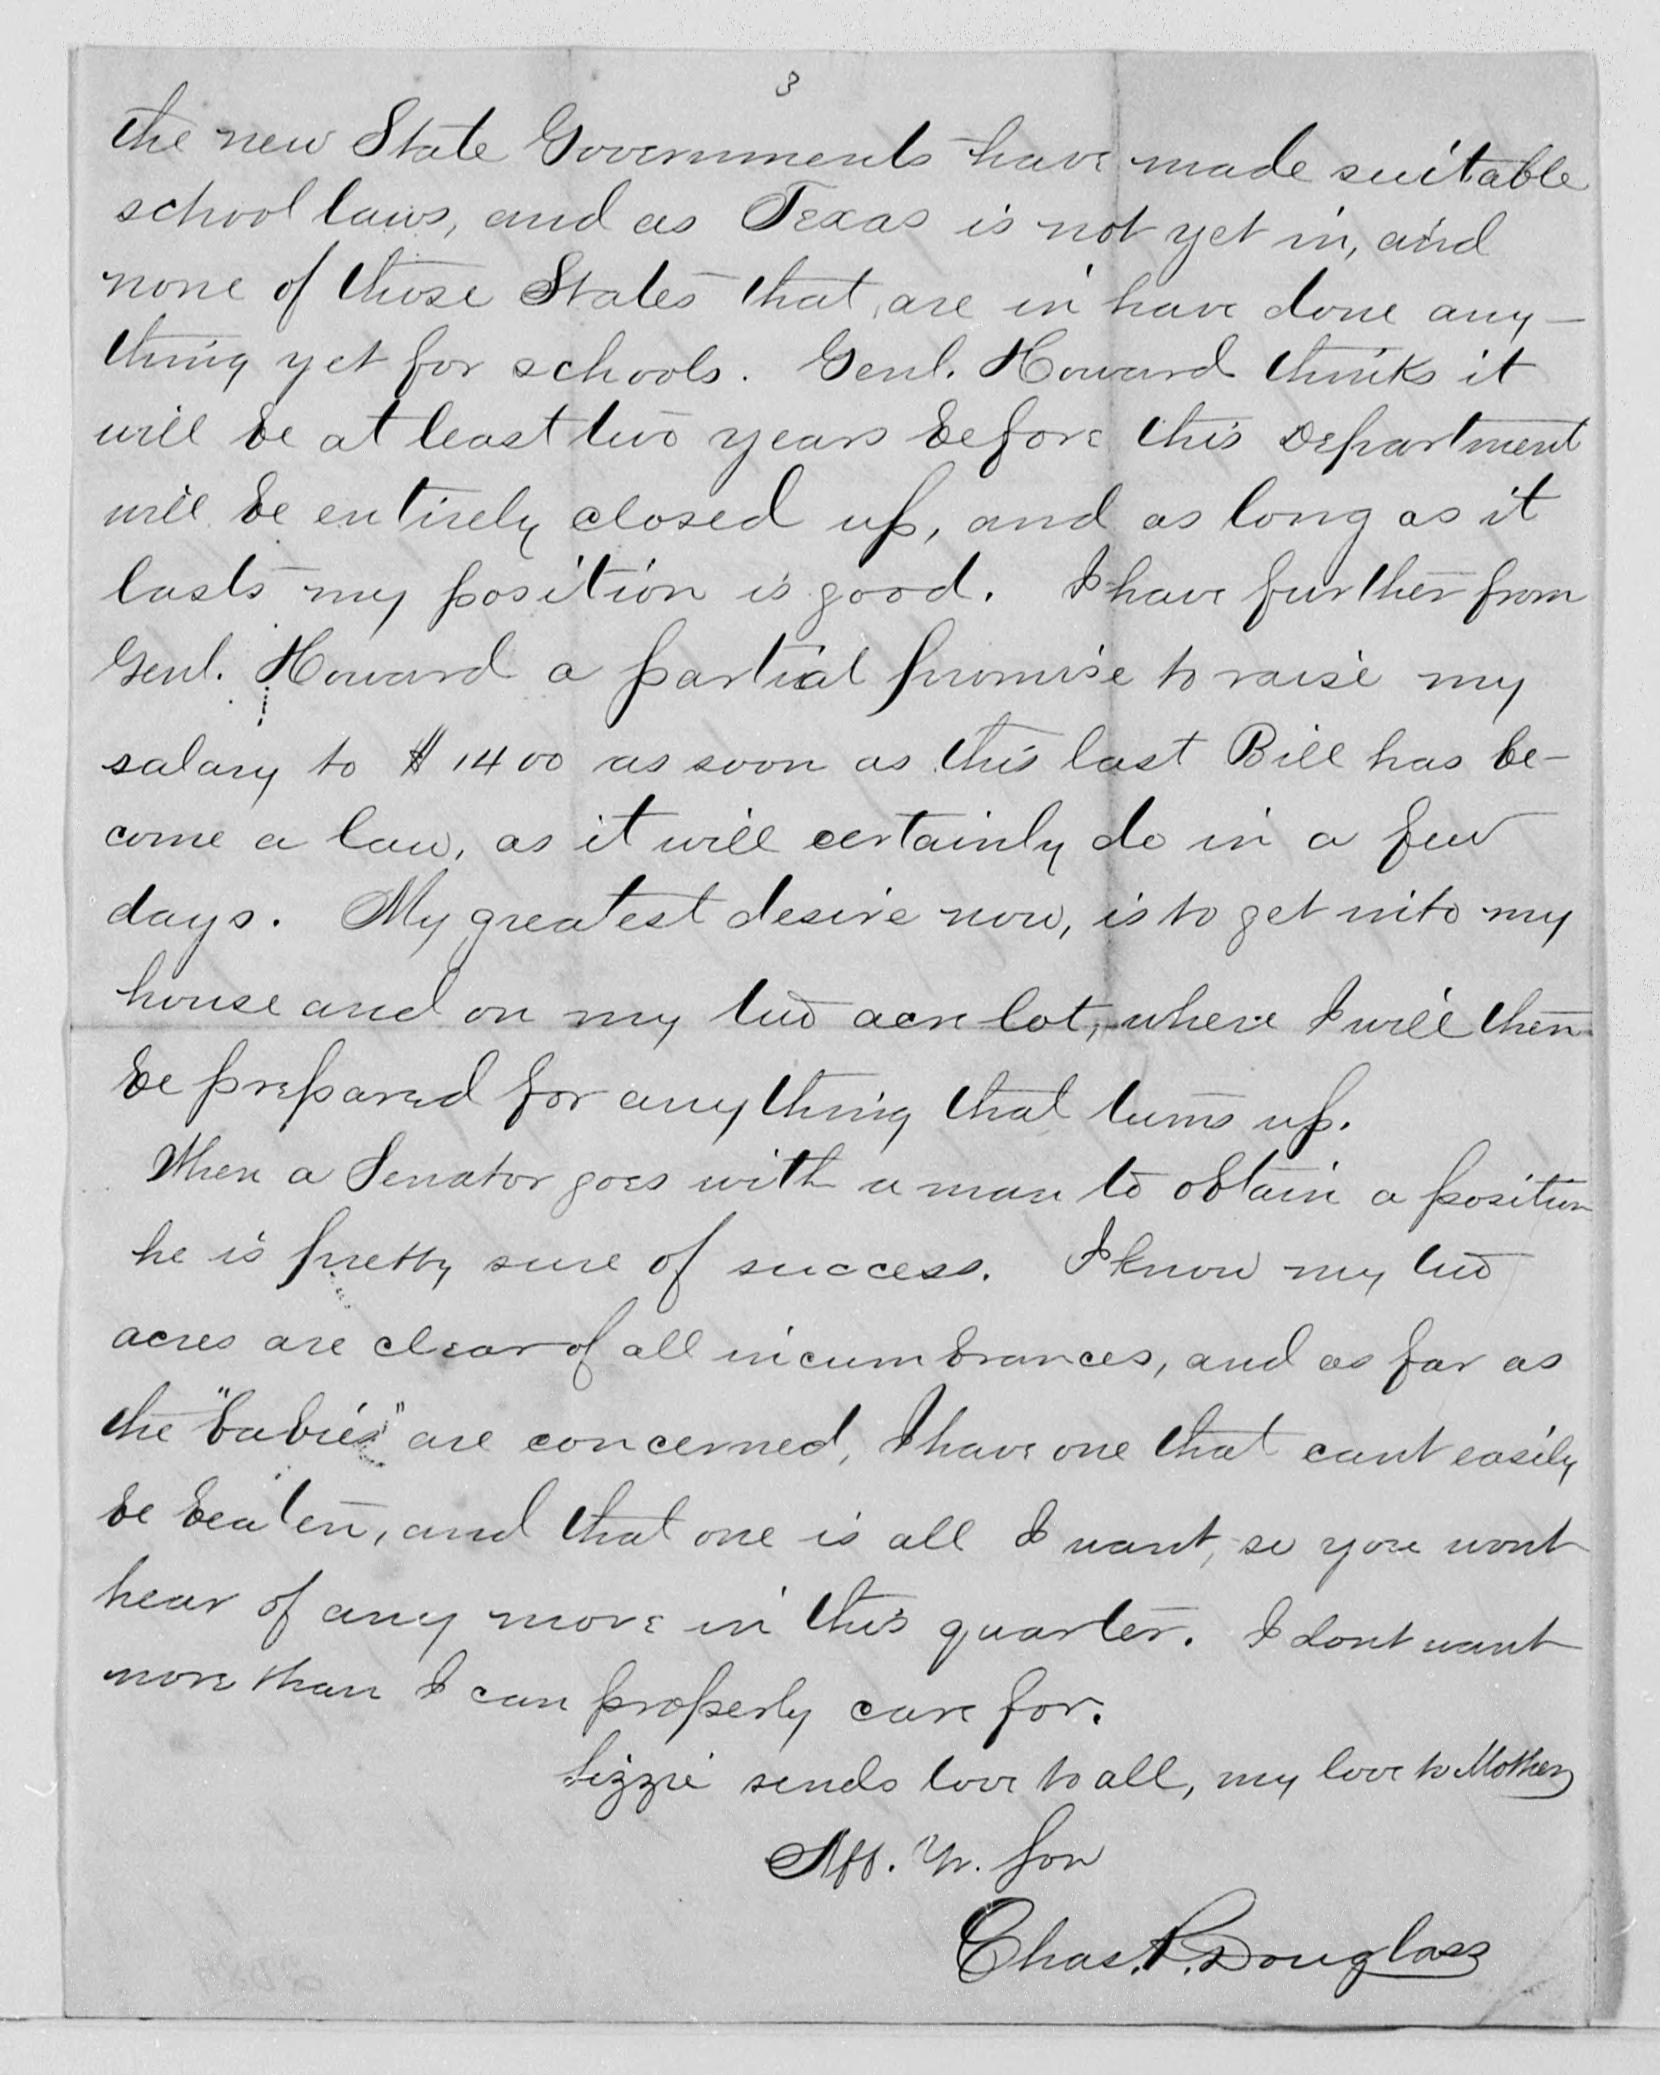 3
the new State Governments have made suitable
school laws, and as Texas is not yet in, and
none of those States that are in have done any-
thing yet for schools. Genl. Howard thinks it
will be at least two years before this Department
will be entirely closed up, and as long as it
lasts my position is good. I have further from
Genl. Howard a partial promise to raise my
salary to $1400 as soon as this last Bill has be-
come a law, as it will certainly do in a few
days. My greatest desire now, is to get into my
house and on my two acre lot, where I will then
be prepared for anything that turns up.
When a Senator goes with a man to obtain a position
he is pretty sure of success. I know my two
acres are clear of all incumbrances, and as far as
the "babies" are concerned, I have one that cant easily
be beaten, and that one is all I want, so you wont
hear of any more in this quarter. I dont want
more than I can properly care for.
Lizzie sends love to all, my love to Mother
Aff. Yr. Son
Chas. R. Douglass